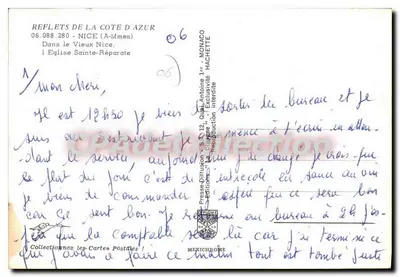 REFLETS DE LA COTE D'AZUR
06.088.280 - NICE (A-Mmes)
Dans le Vieux Nice,
l'Eglise Sainte-Réparate
06
06
1/
mon chéri,
Il est 12h30 je viens de sortir du bureau et je
suis au restaurant je commence à t'écrire en atten-
dant le service, aujourd'hui je mange
le plat du jour c'est de l'entrecôte en sauce
je viens de commander j'espère que ce sera bon
car ça sent bon. Je au bureau à 2h
que la comptable sera là car j'ai terminé ce
que j'avais à faire ce matin tout est tombé juste
Collectionnez les Cartes Postales
MEXICHROME
Presse-Diffusion - 12, Quai Antoine 1er - MONACO
Exclusivité HACHETTE
Reproduction interdite